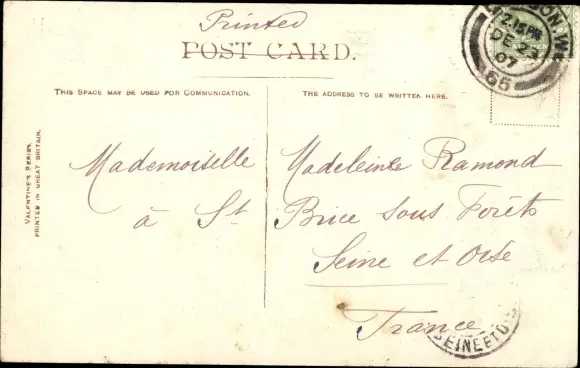 Printed
POST CARD.
LONDON. W.C
2.15 PM
DE 23
07
65
THIS SPACE MAY BE USED FOR COMMUNICATION.
THE ADDRESS TO BE WRITTEN HERE.
VALENTINE'S SERIES
PRINTED IN GREAT BRITAIN.
Mademoiselle Madeleine Ramond
à St Brice sous Forêts
Seine et Oise
France
SEINE ET O